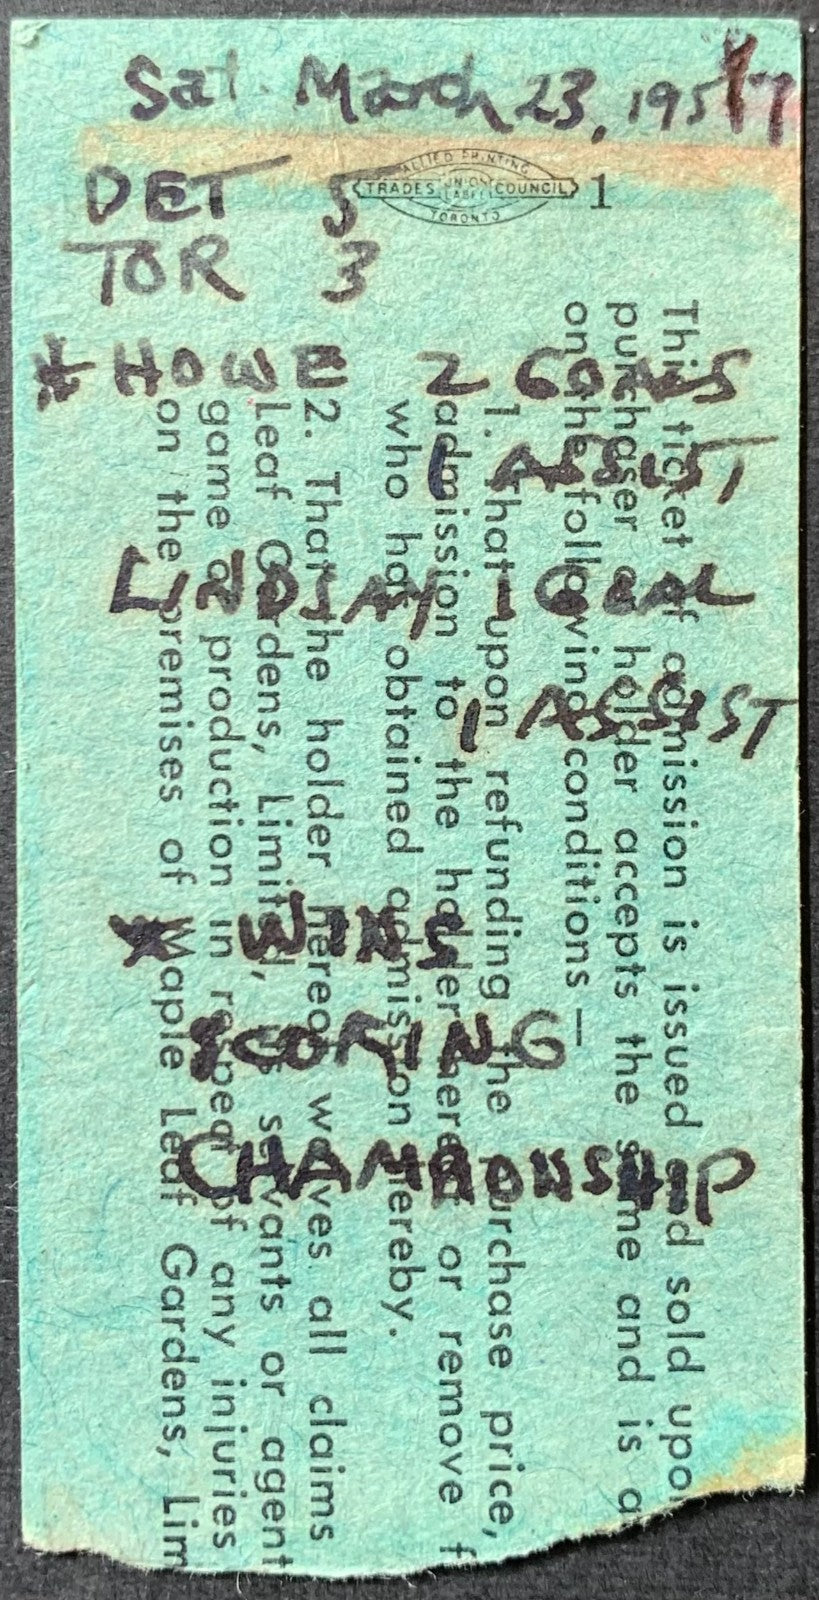 Sat. March 23, 1957
DET 5
TOR 3
* HOWE 2 GOALS
1 ASSIST
LINDSAY 1 GOAL
1 ASSIST
* WINS
SCORING
CHAMPIONSHIP
ALLIED PRINTING
TRADES UNION LABEL COUNCIL 1
TORONTO
This ticket of admission is issued and sold upon
purchaser or holder accepts the same and is a
on the following conditions—
1. That upon refunding the purchase price,
admission to the holder hereof or remove f
who has obtained admission hereby.
2. That the holder hereof waives all claims
Leaf Gardens, Limited, its servants or agent
game or production in respect of any injuries
on the premises of Maple Leaf Gardens, Lim